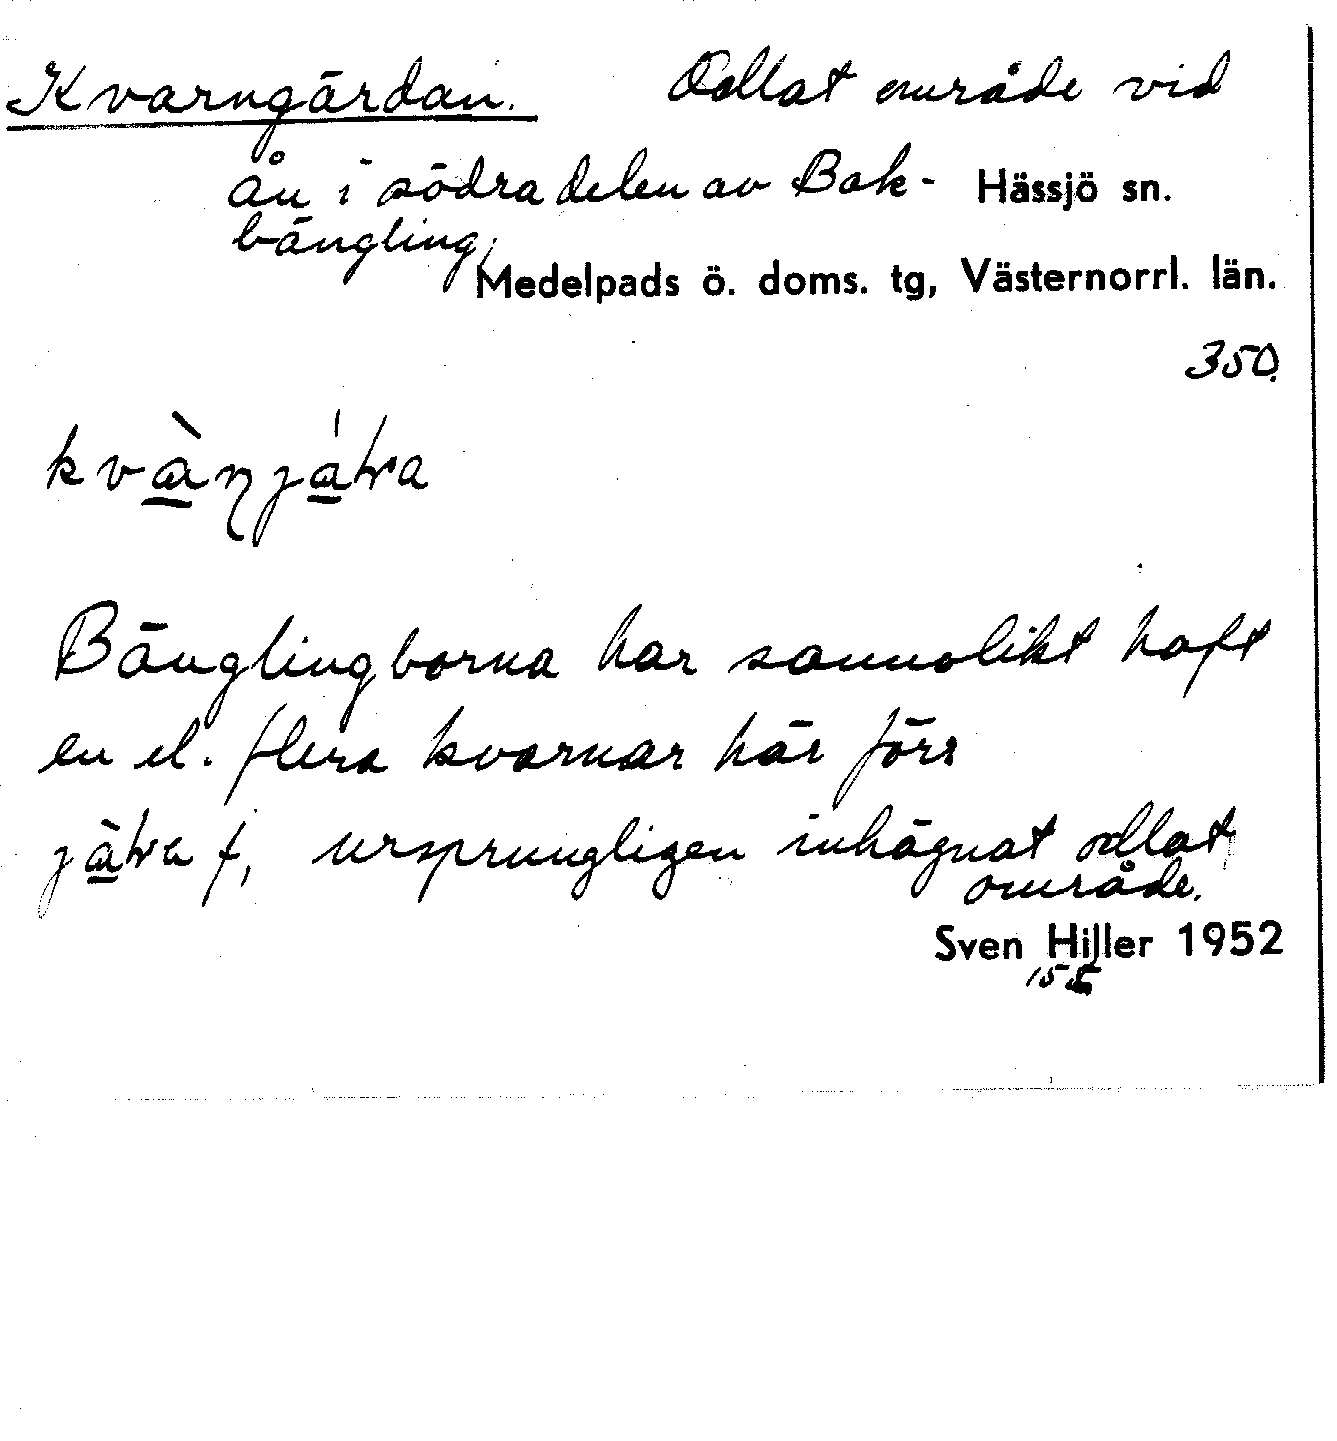 Kvarngärdan. Odlat område vid
ån i södra delen av Bak- Hässjö sn.
bängling,
Medelpads ö. doms. tg, Västernorrl. län.
350.
Bänglingborna har sannolikt haft
en el. flera kvarnar här förr
f, ursprungligen inhägnat odlat
område.
Sven Hiller 1952
155